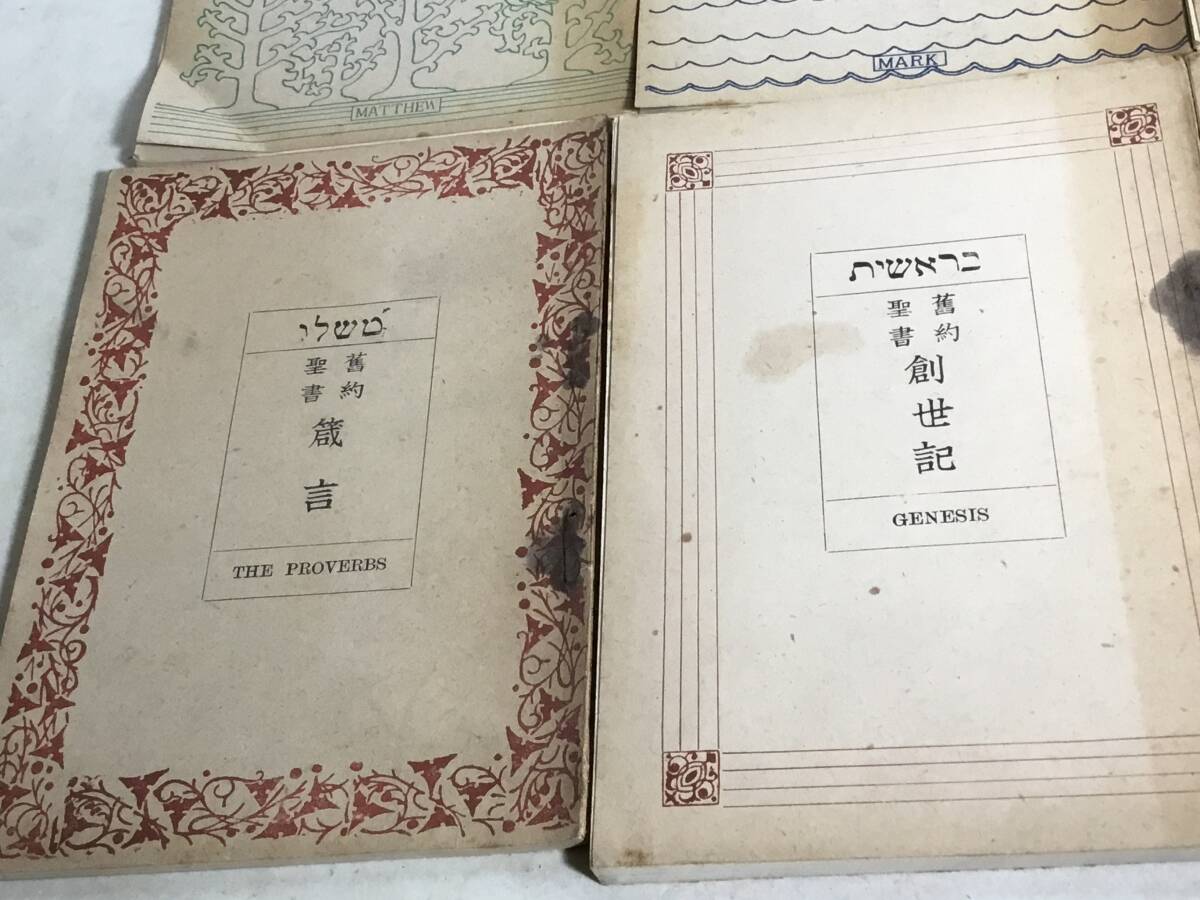 MATTHEW
MARK
משלי
舊約
聖書
箴言
THE PROVERBS
בראשית
舊約
聖書
創世記
GENESIS